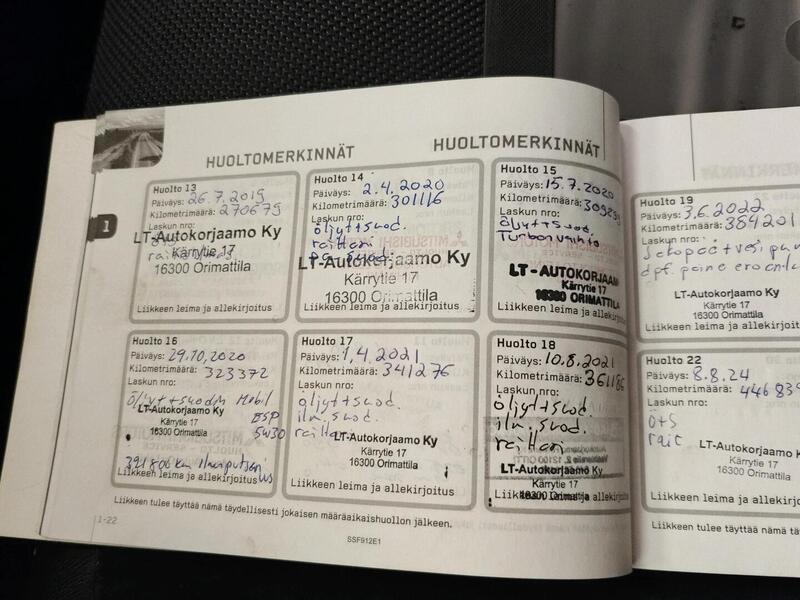 HUOLTOMERKINNÄT
HUOLTOMERKINNÄT
1
Huolto 13
Päiväys: 26.7.2019
Kilometrimäärä: 270679
Laskun nro:
LT-Autokorjaamo Ky
Kärrytie 17
16300 Orimattila
Liikkeen leima ja allekirjoitus
Huolto 14
Päiväys: 2.4.2020
Kilometrimäärä: 301116
Laskun nro:
öljyt+suod.
raittari
LT-Autokorjaamo Ky
Kärrytie 17
16300 Orimattila
Liikkeen leima ja allekirjoitus
Huolto 15
Päiväys: 15.7.2020
Kilometrimäärä:
Laskun nro:
öljyt+suod.
LT-AUTOKORJAAM
Kärrytie 17
16300 ORIMATTILA
Liikkeen leima ja allekirjoitus
Huolto 16
Päiväys: 29.10.2020
Kilometrimäärä: 323372
Laskun nro:
Mobil
LT-Autokorjaamo Ky
ESP
Kärrytie 17
5W30
16300 Orimattila
321806 km
Liikkeen leima ja allekirjoitus
Huolto 17
Päiväys: 1.4.2021
Kilometrimäärä: 341276
Laskun nro:
öljyt+suod.
ilm.suod.
LT-Autokorjaamo Ky
Kärrytie 17
16300 Orimattila
Liikkeen leima ja allekirjoitus
Huolto 18
Päiväys: 10.8.2021
Kilometrimäärä: 361186
Laskun nro:
öljyt+suod.
ilm.suod.
raittari
LT-Autokorjaamo Ky
Kärrytie 17
16300 Orimattila
Liikkeen leima ja allekirjoitus
Liikkeen tulee täyttää nämä täydellisesti jokaisen määräaikaishuollon jälkeen.
1-22
SSF912E1
Huolto 19
Päiväys: 3.6.2022
Kilometrimäärä: 384201
Laskun nro:
LT-Autokorjaamo Ky
Kärrytie 17
16300 Orimattila
Liikkeen leima ja allekirjoitus
Huolto 22
Päiväys: 8.8.24
Kilometrimäärä: 446839
Laskun nro:
ö+s
rait
LT-Autokorjaamo Ky
Kärrytie 17
16300 Orimattila
Liikkeen leima ja allekirjoitus
Liikkeen tulee täyttää nämä tä